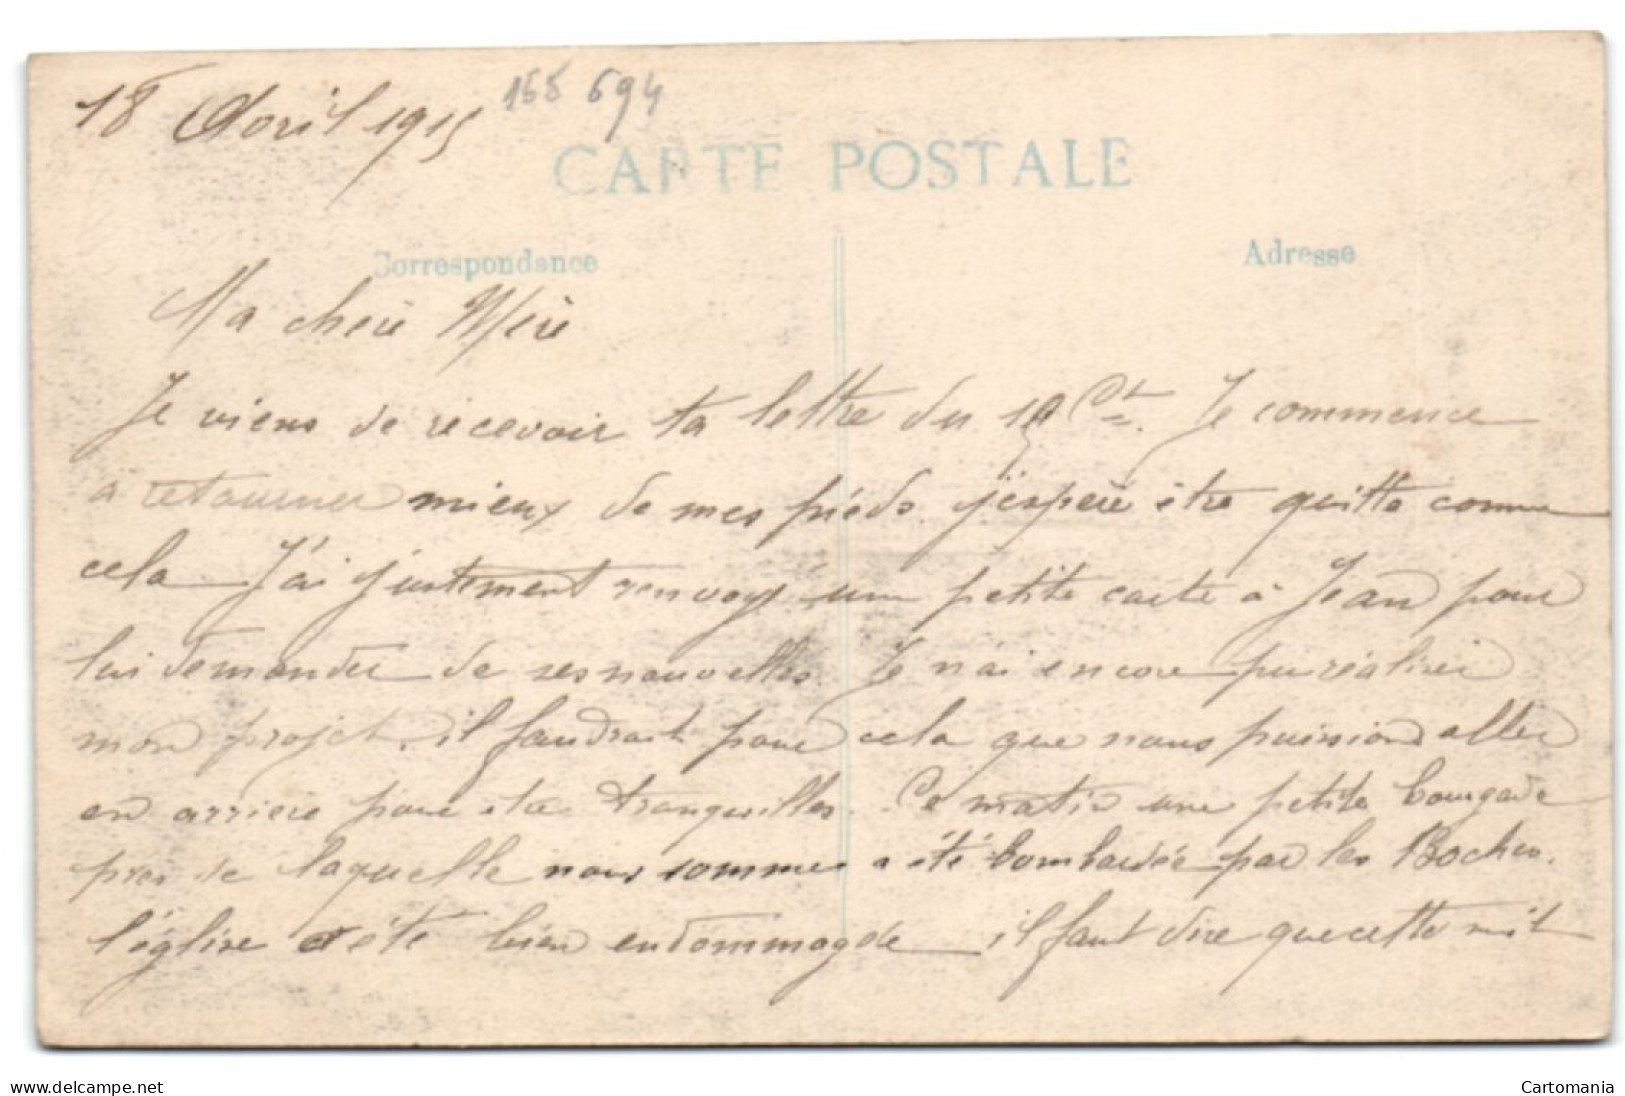 18 Avril 1915
155 694
CARTE POSTALE
Correspondance
Adresse
Ma chère Mère
Je viens de recevoir ta lettre du 19 Ct. Je commence
à retourner mieux de mes pieds. j'espère être quitte comme
cela. J'ai justement renvoyé une petite carte à Jean pour
lui demander de ses nouvelles. Je n'ai encore pu réaliser
mon projet, il faudrait pour cela que nous puissions aller
en arrière pour être tranquilles. Ce matin une petite bourgade
près de laquelle nous sommes a été bombardée par les Boches.
l'église a été bien endommagée il faut dire que cette nuit
www.delcampe.net
Cartomania